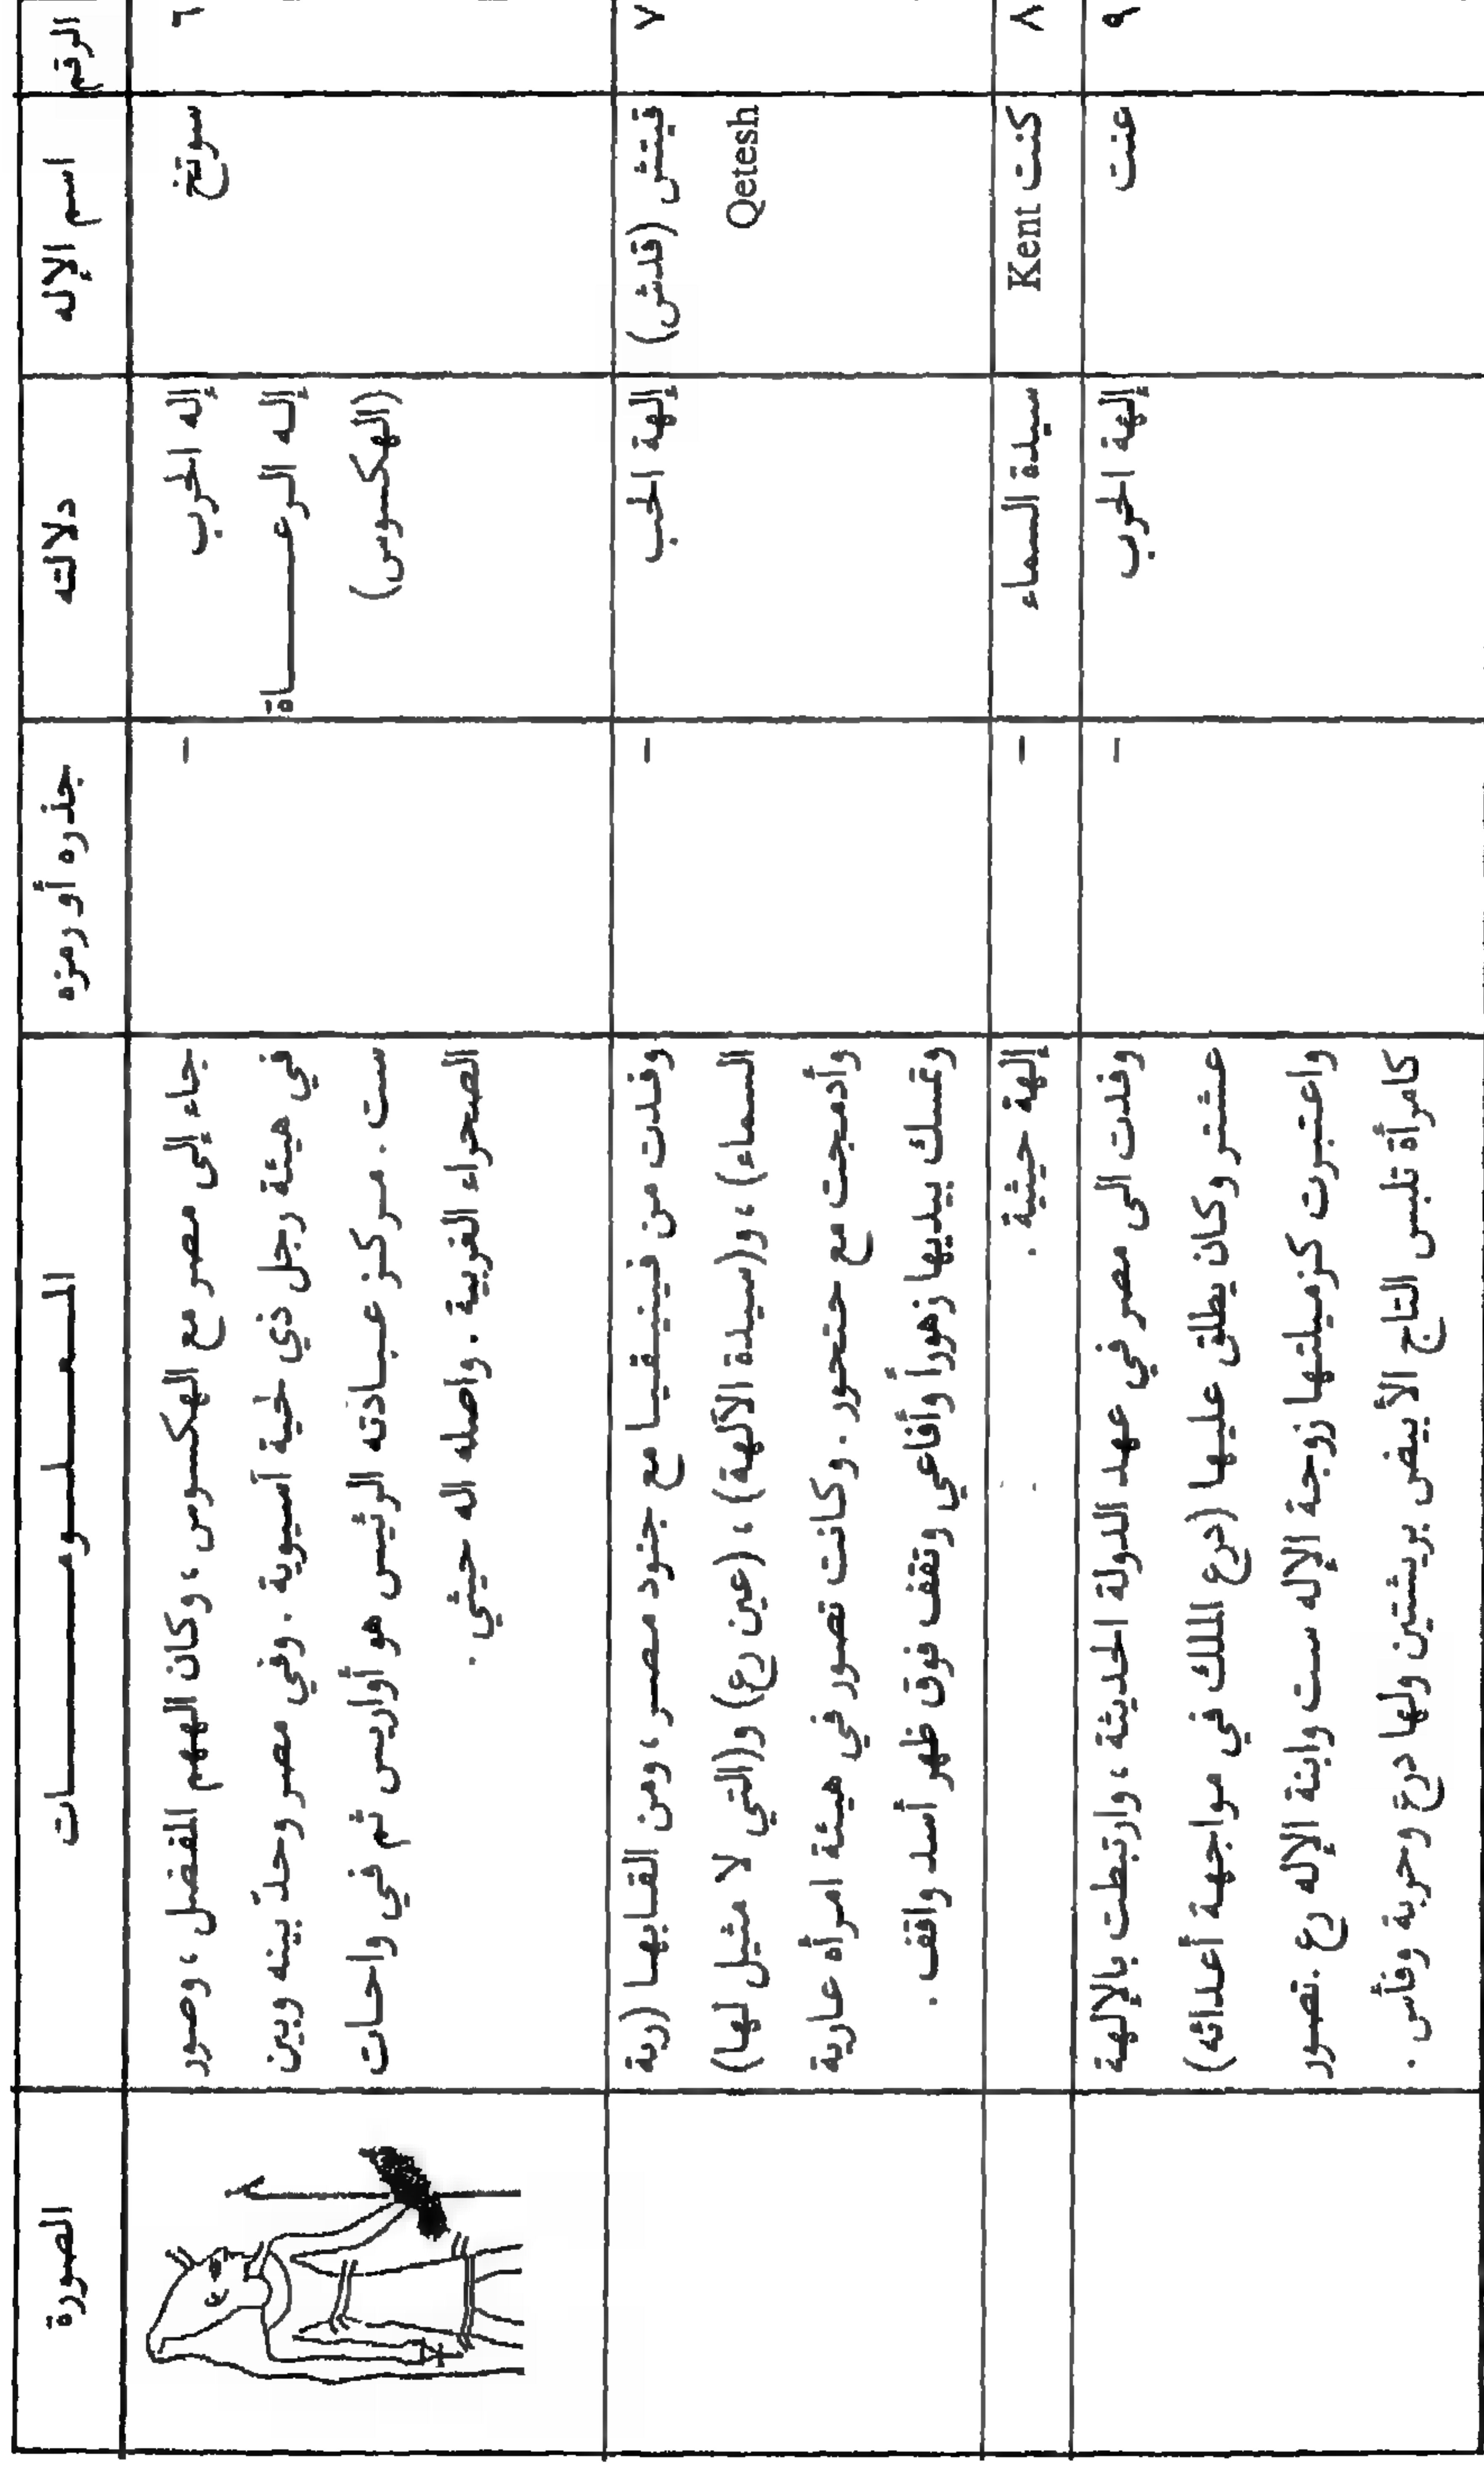 الرقم	اسم الإله	دلالته	جذره أو رمزه	المعلومات	الصورة
٦	سوتخ	إله الحرب	-	جاء إلى مصر مع الهكسوس ، وكان الههم المفضل ، وصور
إله الرعاة	في هيئة رجل ذي لحية آسيوية . وفي مصر وحدّ بينه وبين
(الهكسوس)	ست . مركز عبادته الرئيس هو أواريس ثم في واحات
الصحراء الغربية . واصله اله حيثي .
٧	قيتش (قدش)	إلهة الحب	-	وفدت من فينيقيا مع جنود مصر ، ومن القابها (ربة
Qetesh	السماء) ، و(سيدة الآلهة) ، (عين رع) و(التي لا مثيل لها)
وأدمجت مع حتحور . وكانت تصور في هيئة امرأة عارية
وتمسك بيديها زهوراً وأفاعي وتقف فوق ظهر أسد واقف .
٨	كنت Kent	سيدة السماء	-	إلهة حيثية .
٩	عنت	إلهة الحرب	-	وفدت الى مصر في عهد الدولة الحديثة ، وارتبطت بالإلهة
عشتر وكان يطلق عليها (درع الملك في مواجهة أعدائه)
واعتبرت كزميلتها زوجة الإله ست وابنة الإله رع . تصور
كامرأة تلبس التاج الأبيض بريشتين ولها درع وحربة وفأس .